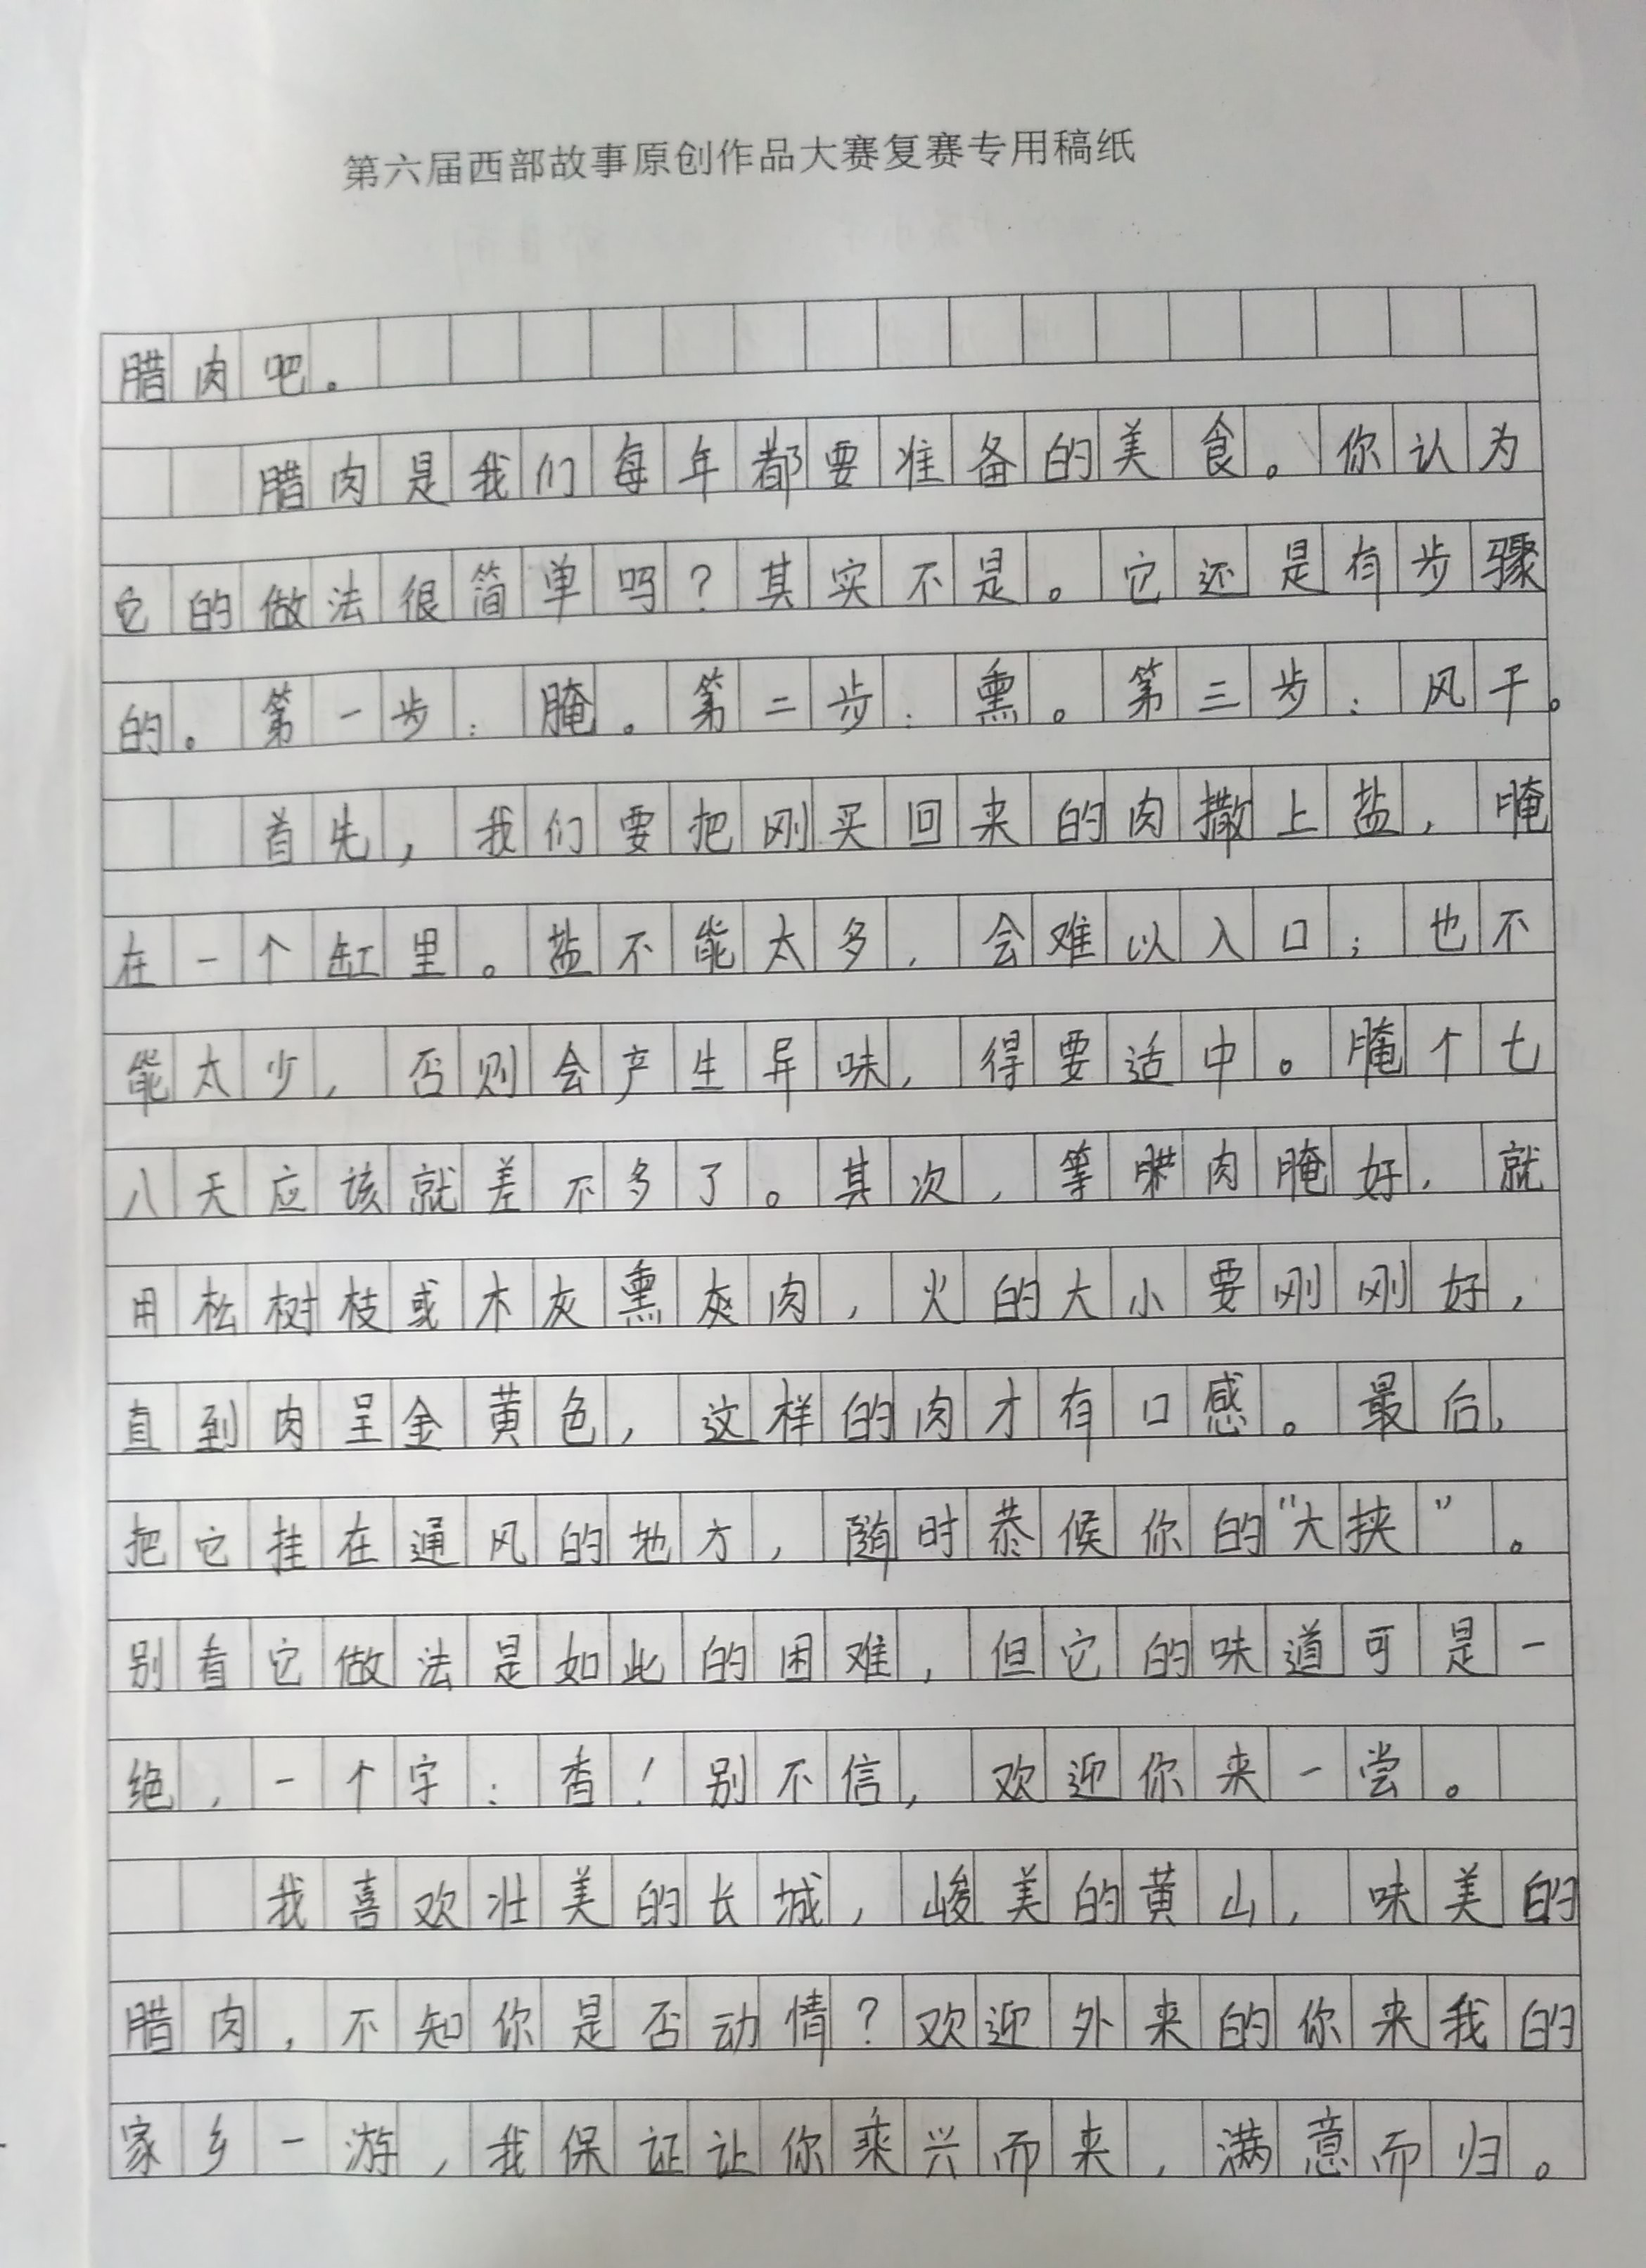 第六届西部故事原创作品大赛复赛专用稿纸
腊肉吧。
腊肉是我们每年都要准备的美食。你认为
它的做法很简单吗？其实不是。它还是有步骤
的。第一步：腌。第二步：熏。第三步：风干。
首先，我们要把刚买回来的肉撒上盐，腌
在一个缸里。盐不能太多，会难以入口；也不
能太少，否则会产生异味，得要适中。腌个七
八天应该就差不多了。其次，等腊肉腌好，就
用松树枝或木灰熏肉，火的大小要刚刚好，
直到肉呈金黄色，这样的肉才有口感。最后，
把它挂在通风的地方，随时恭候你的“大挟”。
别看它做法是如此的困难，但它的味道可是一
绝，一个字：香！别不信，欢迎你来一尝。
我喜欢壮美的长城，峻美的黄山，味美的
腊肉，不知你是否动情？欢迎外来的你来我的
家乡一游，我保证让你乘兴而来，满意而归。